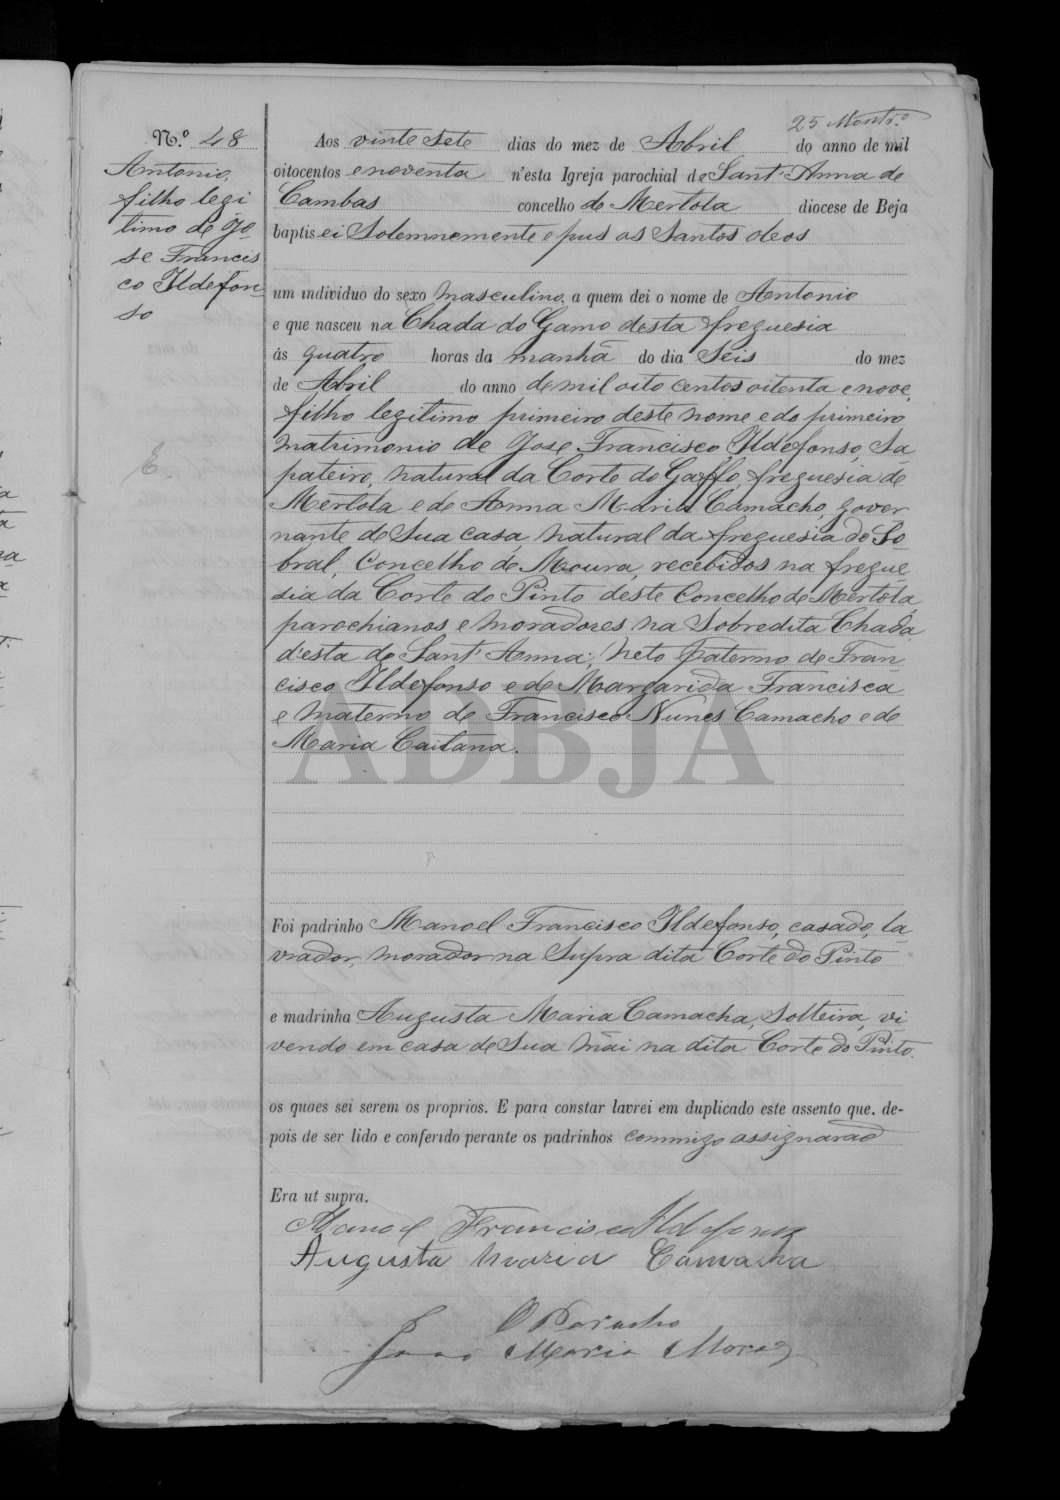 25 Montr.º
N.º 48
Antonio,
filho legi
timo de Jo-
se Francis
co Ildefon-
so
Aos vinte sete dias do mez de Abril do anno de mil
oitocentos e noventa n'esta Igreja parochial de Sant'Anna de
Cambas concelho de Mertola diocese de Beja
baptisei Solemnemente e pus os Santos oleos
um individuo do sexo masculino, a quem dei o nome de Antonio
e que nasceu na Chada do Gamo desta freguesia
ás quatro horas da manhã do dia Seis do mez
de Abril do anno de mil oito centos oitenta e nove,
filho legitimo primeiro deste nome e do primeiro
matrimonio de Jose Francisco Ildefonso, Sa-
pateiro, natural da Corte do Gaffo, freguesia de
Mertola e de Anna Maria Camacho, gover
nante de Sua casa, natural da freguesia do So-
bral, Concelho de Moura, recebidos na fregue-
sia da Corte do Pinto deste Concelho de Mertola,
parochianos e moradores na Sobredita Chada
d'esta de Sant'Anna; Neto paterno de Fran-
cisco Ildefonso e de Margarida Francisca
e materno de Francisco Nunes Camacho e de
Maria Caitana.
ADBJA
Foi padrinho Manoel Francisco Ildefonso, casado, la-
vrador, morador na Supra dita Corte do Pinto
e madrinha Augusta Maria Camacha, Solteira, vi-
vendo em casa de Sua Mãi na dita Corte do Pinto.
os quaes sei serem os proprios. E para constar lavrei em duplicado este assento que, de-
pois de ser lido e conferido perante os padrinhos commigo assignarão
Era ut supra.
Manoel Francisco Ildefonso
Augusta Maria Camacha
O Parocho
João Maria